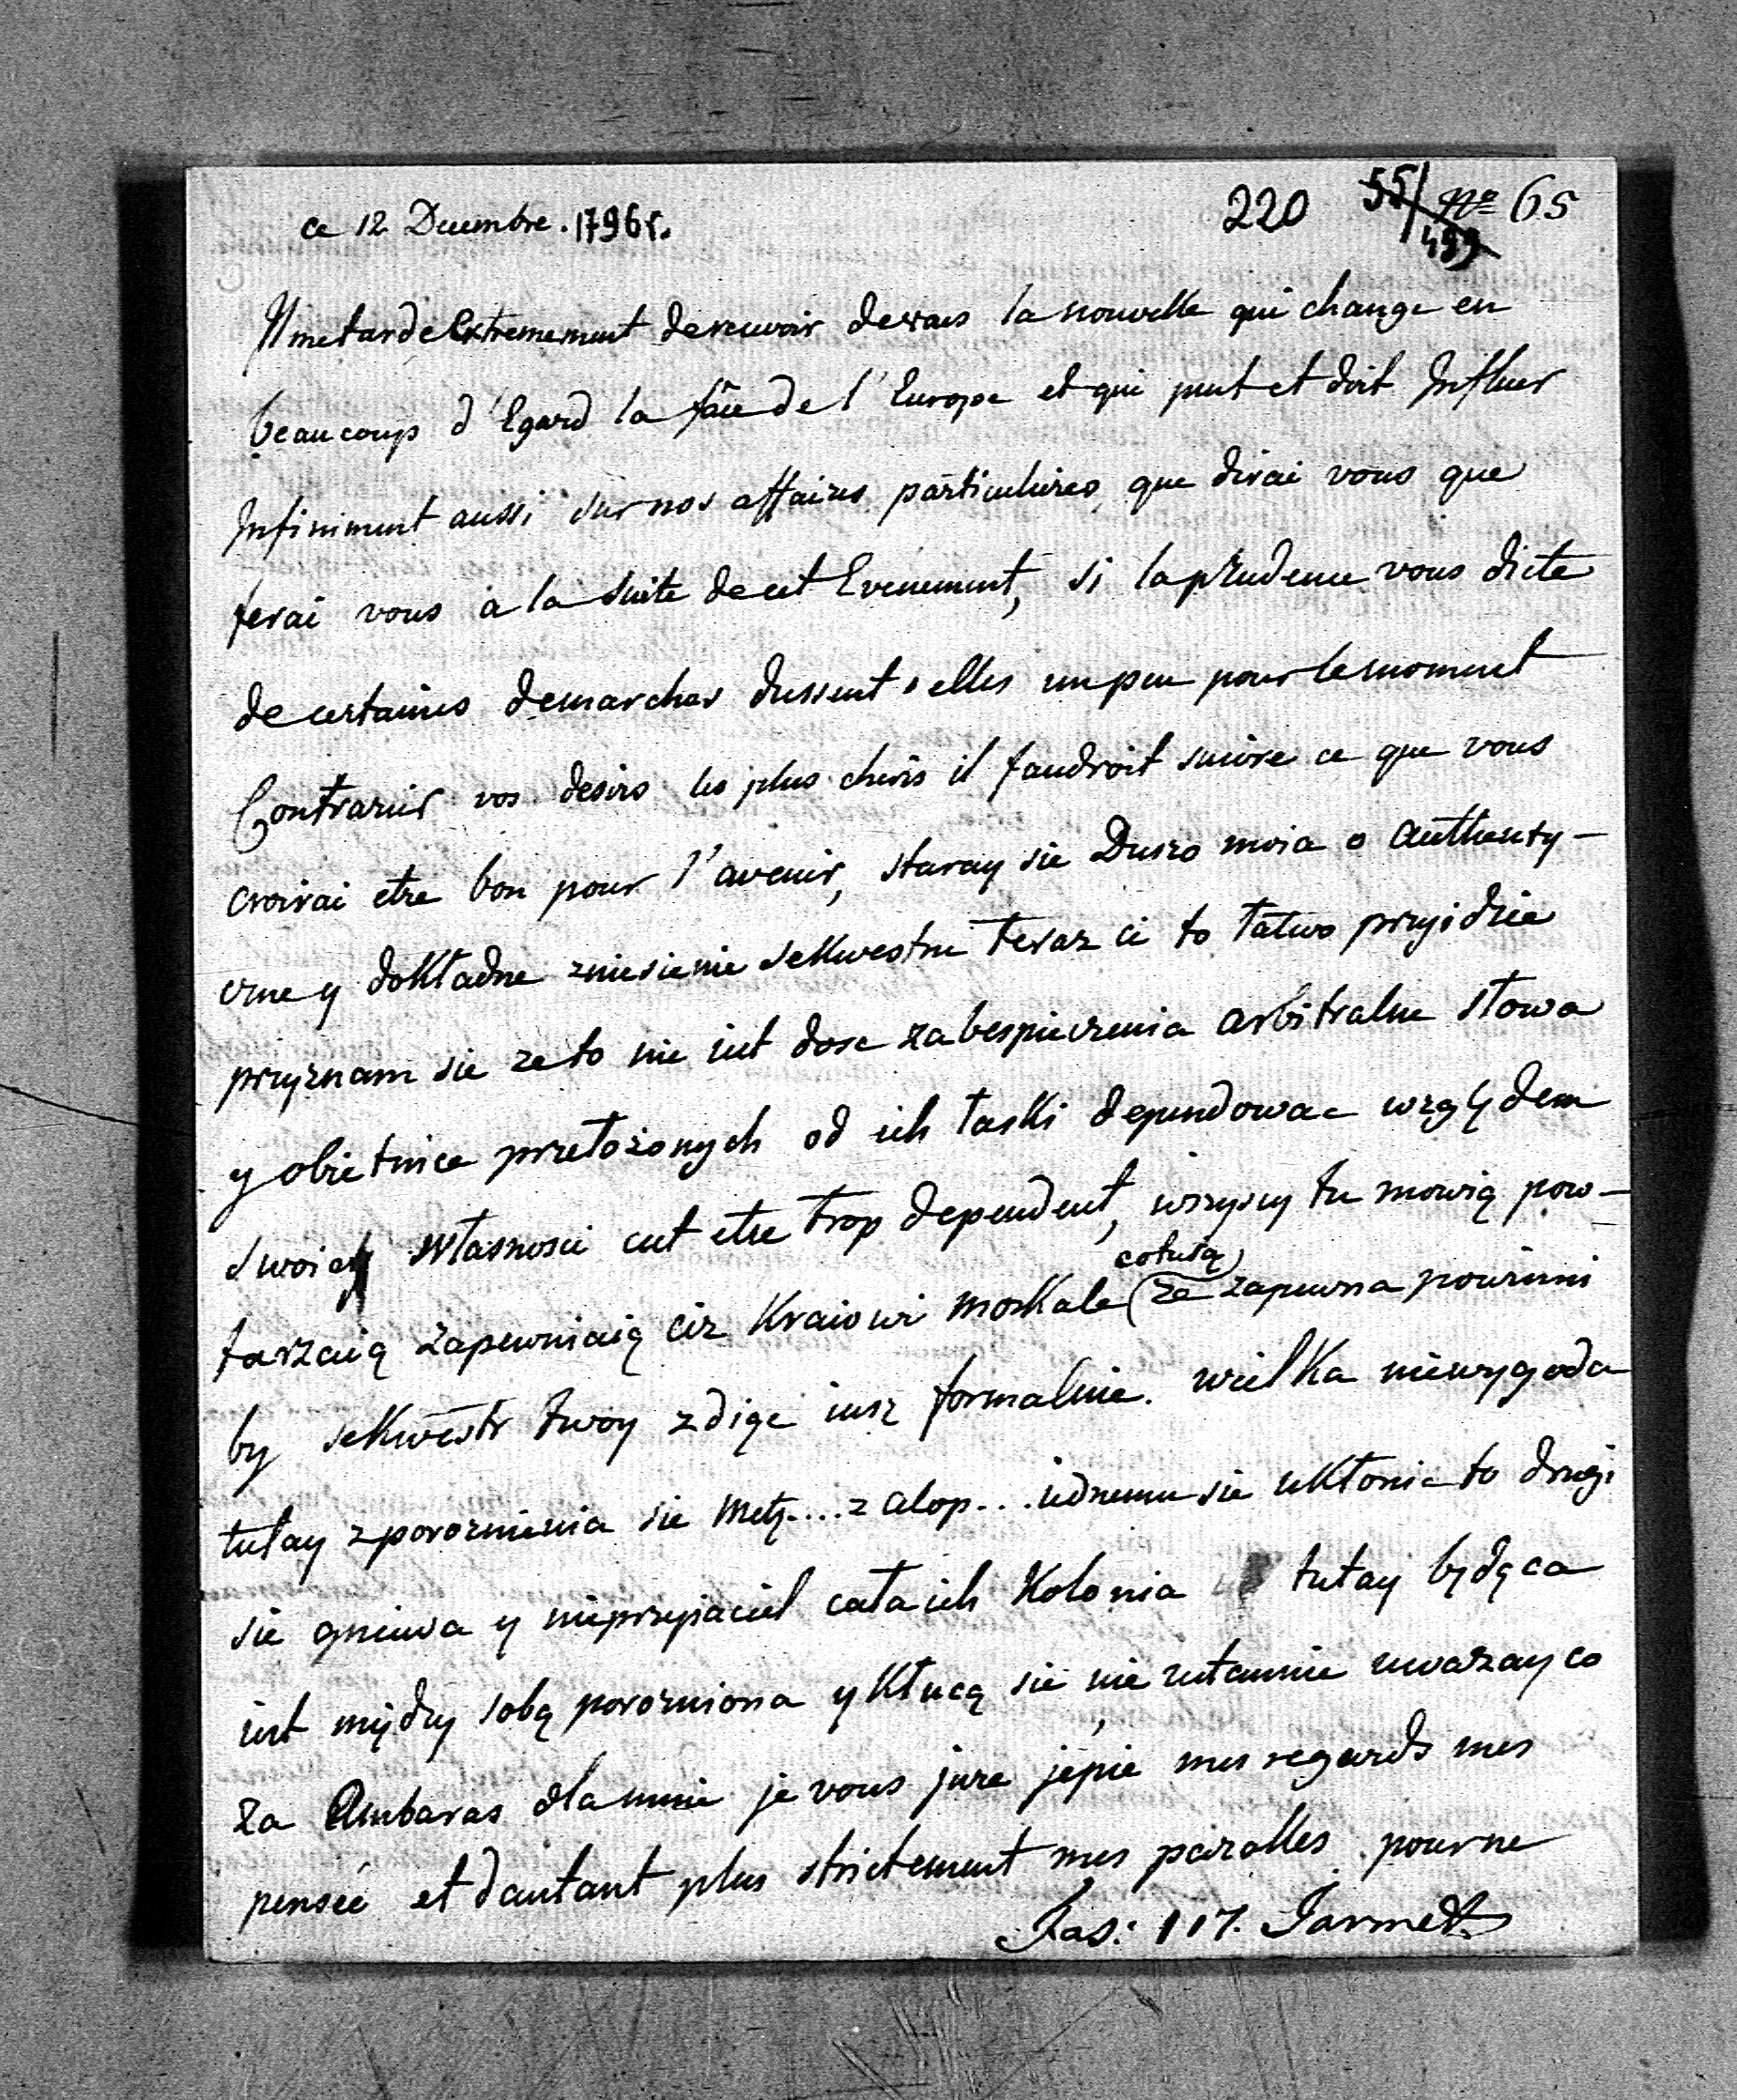 ce 12 Decembre. 1796 r.
220 55/499 No 65
Il me tarde Extremement de recevoir de vous la nouvelle qui change en
beaucoup d'Egard la face de l'Europe et qui peut et doit Influer
Infiniment aussi sur nos affaires particulieres, que dirai vous que
ferai vous a la suite de cet Evenement, si la prudence vous dicte
de certaines demarches dussent elles un peu pour le moment
Contrarier vos desirs les plus cheris il faudroit suivre ce que vous
croirai etre bon pour l'avenir, staray sie Duszo moia o authenty-
czne y dokładne zniesienie sekwestru teraz ci to łatwo przyidzie
przyznam sie ze to nie iest dosc zabespieczenia arbitralne słowa
y obietnice przełożonych od ich łaski dependowac względem
swoiey własnosci cest etre trop dependent, wszyscy tu mowią pow-
tarzaią zapewniaią ciz Kraiowi moskale (ze zapewna powinni
cotusą)
by sekwestr twoy zdiąc iusz formalnie. wielka niewygoda
tutay z poroznienia sie Metz.... z alop... iednemu sie ukłonic to drugi
sie gniewa y nieprzyiaciel cała ich Kolonia tutay będąca
iest między sobą porozniona y kłucą sie nieustannie uwazay co
za Ambaras dla mnie je vous jure j'epie mes regards mes
pensée et dautant plus strictement mes parolles pour ne
Fas: 117. Jarmett